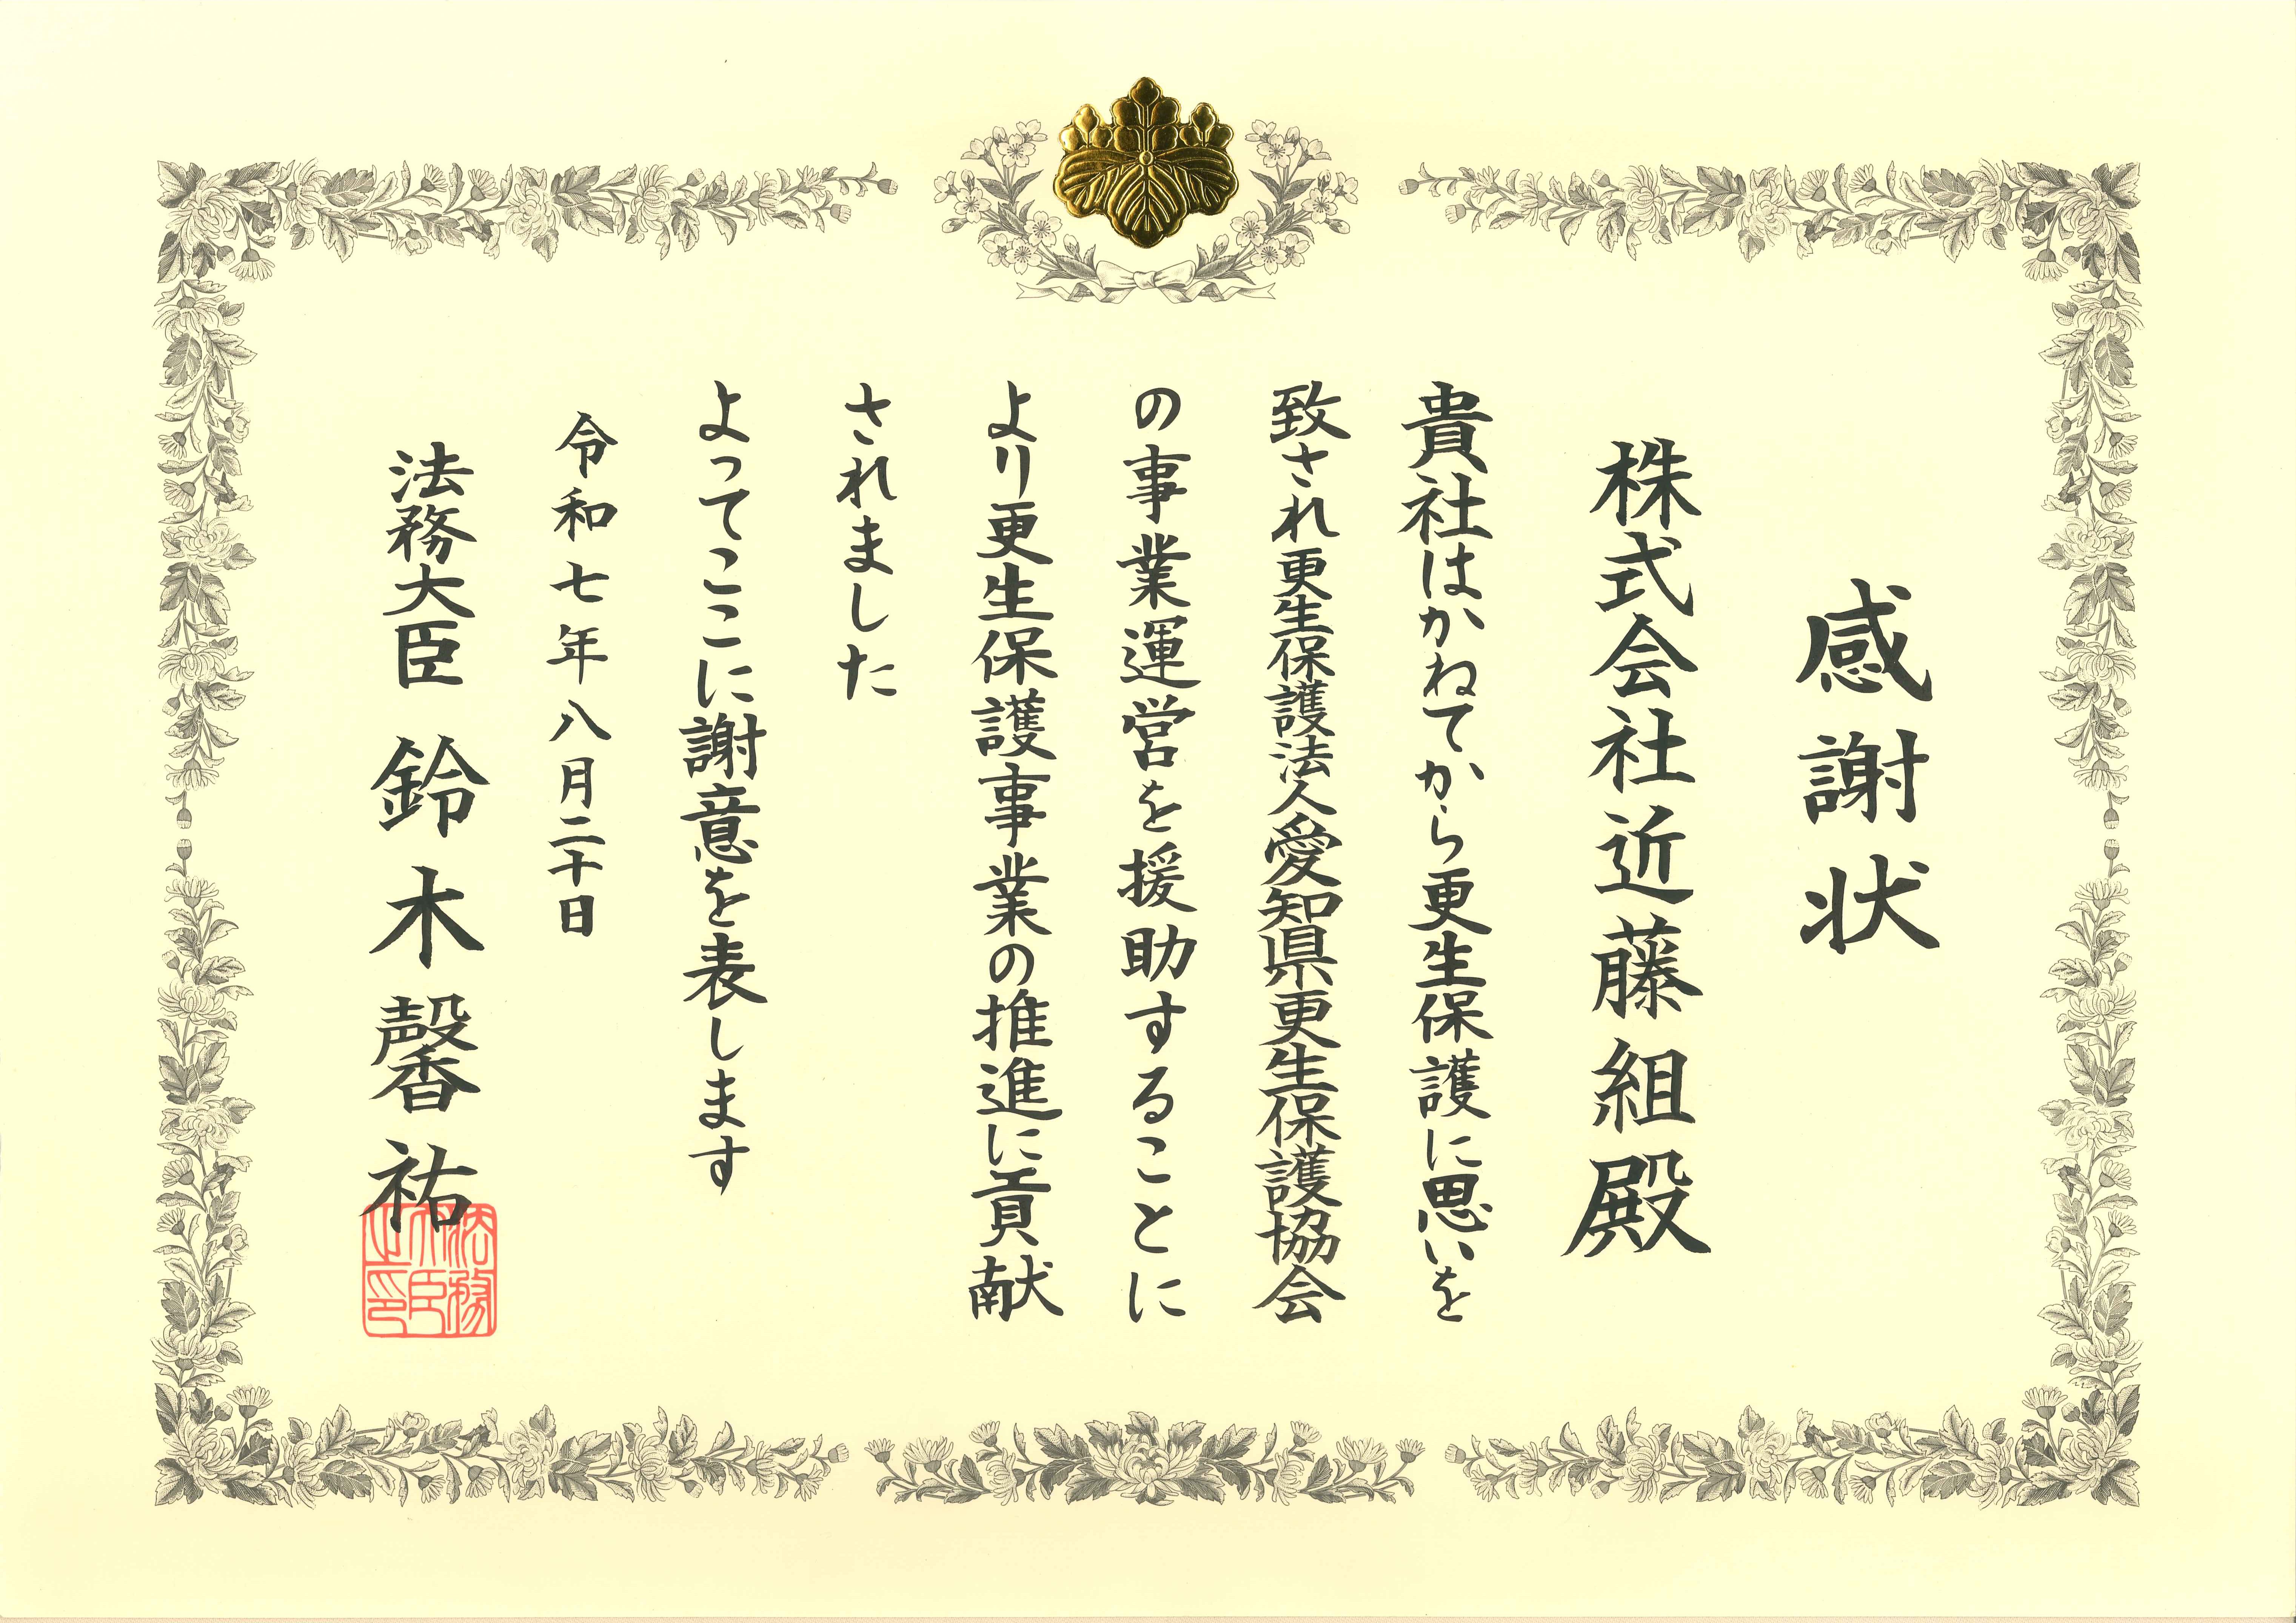 感謝状
株式会社近藤組殿
貴社はかねてから更生保護に思いを
致され更生保護法人愛知県更生保護協会
の事業運営を援助することに
より更生保護事業の推進に貢献
されました
よってここに謝意を表します
令和七年八月二十日
法務大臣 鈴木馨祐
法務
大臣
之印